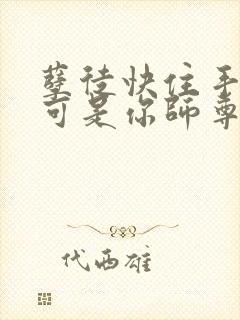 孽徒快住手
可是你師尊
代西雄